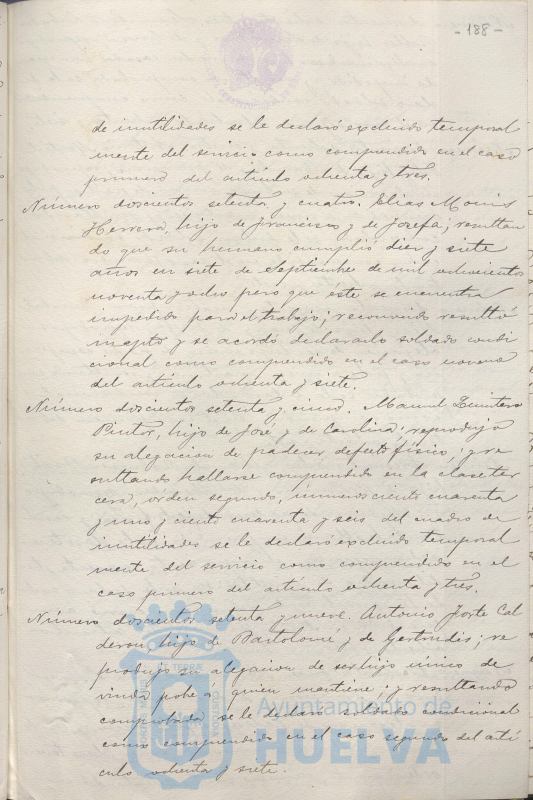 - 188 -
de inutilidades se le declaró excluido temporal
mente del servicio como comprendido en el caso
primero del artículo ochenta y tres.
Número doscientos setenta y cuatro. Elias
Herrera, hijo de Francisco y de Josefa; resultan
do que su hermano cumplió diez y siete
años en siete de Septiembre de mil ochocientos
noventa y ocho pero que este se encuentra
impedido para el trabajo; reconocido resultó
inapto y se acordó declararlo soldado condi
cional como comprendido en el caso noveno
del artículo ochenta y siete.
Número doscientos setenta y cinco. Manuel Quintero
Pintor, hijo de José y de Carolina; reprodujo
su alegacion de padecer defecto físico, y re
sultando hallarse comprendido en la clase ter
cera, orden segundo, numeros ciento cuarenta
y uno y ciento cuarenta y seis del cuadro de
inutilidades se le declaró excluido temporal
mente del servicio como comprendido en el
caso primero del artículo ochenta y tres.
Número doscientos setenta y nueve. Antonio Jorte Cal
deron, hijo de Bartolomé y de Gertrudis; re
produjo su alegacion de ser hijo único de
viuda pobre á quien mantiene, y resultando
comprobada se le declaró soldado condicional
como comprendido en el caso segundo del artí
culo ochenta y siete.
Ayuntamiento de
HUELVA